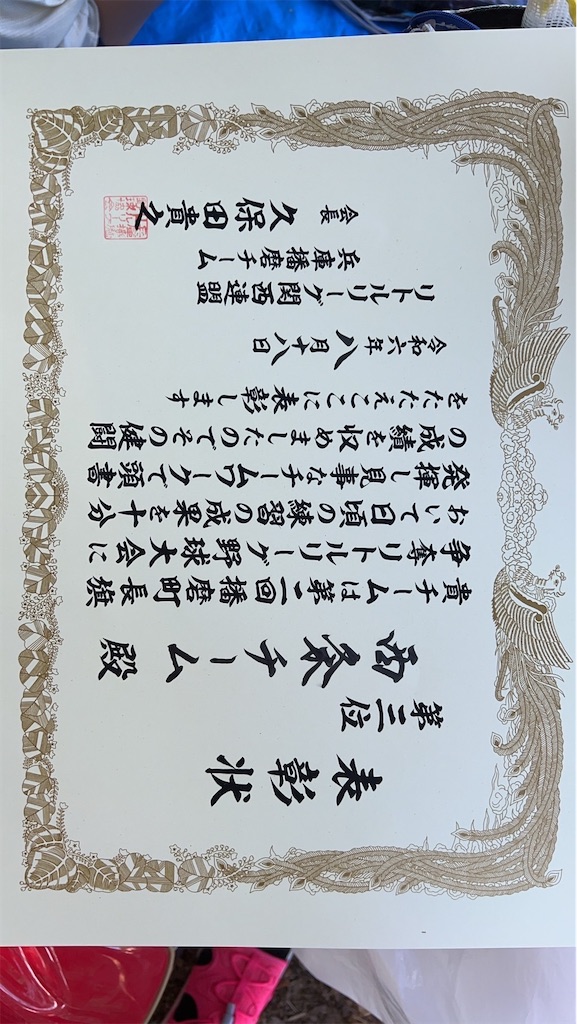 表彰状
第三位
西条チーム 殿
貴チームは第一回播磨町長旗
争奪リトルリーグ野球大会に
おいて日頃の練習の成果を十分
発揮し見事なチームワークで頭書
の成績を収めましたのでその健闘
をたたえここに表彰します
令和六年八月十八日
リトルリーグ関西連盟
兵庫播磨チーム
会長 久保田貴久